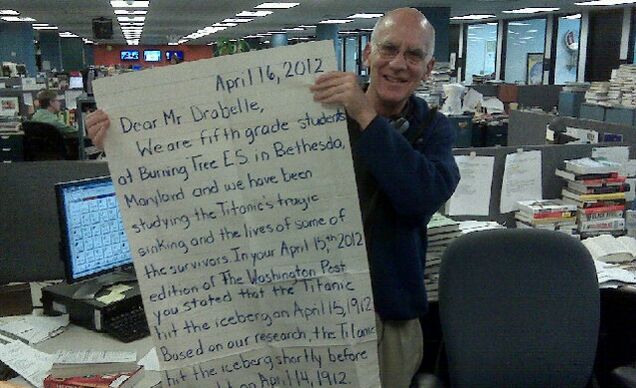 April 16, 2012
Dear Mr Drabelle,
We are fifth grade students
at Burning Tree ES in Bethesda,
Maryland and we have been
studying the Titanic's tragic
sinking and the lives of some of
the survivors. In your April 15,th 2012
edition of The Washington Post
you stated that the Titanic
hit the iceberg on April 15, 1912
Based on our research, the Titanic
hit the iceberg shortly before
on April 14, 1912.